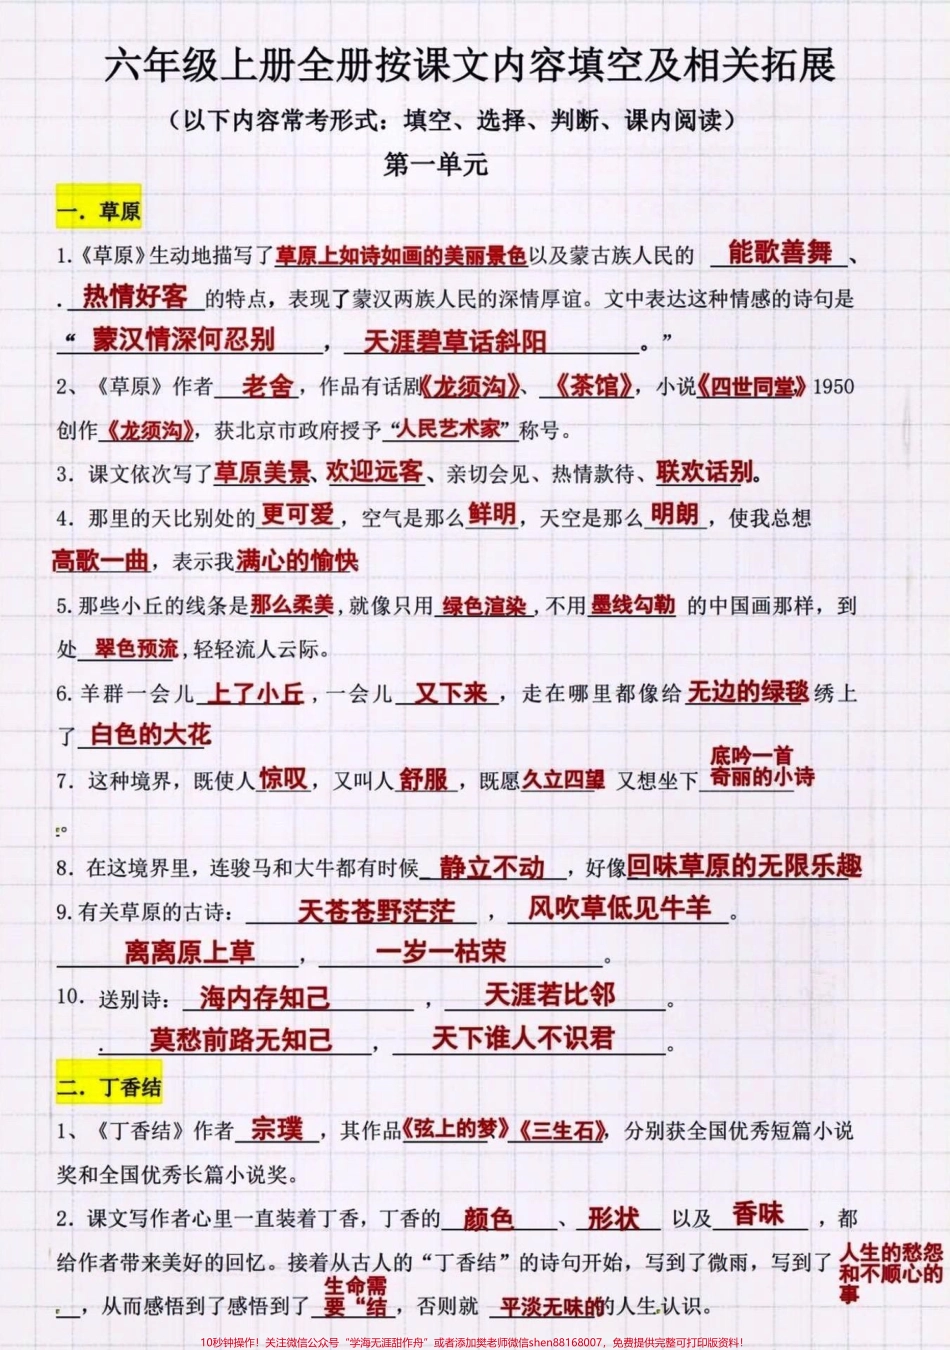 六年级上册全册按课文内容填空及相关拓展
（以下内容常考形式：填空、选择、判断、课内阅读）
第一单元
一．草原
1.《草原》生动地描写了草原上如诗如画的美丽景色以及蒙古族人民的 能歌善舞、
.热情好客 的特点，表现了蒙汉两族人民的深情厚谊。文中表达这种情感的诗句是
“ 蒙汉情深何忍别 ， 天涯碧草话斜阳 。”
2、《草原》作者 老舍，作品有话剧《龙须沟》、《茶馆》，小说《四世同堂》1950
创作《龙须沟》，获北京市政府授予“人民艺术家”称号。
3．课文依次写了草原美景、欢迎远客、亲切会见、热情款待、联欢话别。
4．那里的天比别处的更可爱，空气是那么鲜明，天空是那么明朗，使我总想
高歌一曲，表示我满心的愉快
5.那些小丘的线条是那么柔美,就像只用 绿色渲染,不用墨线勾勒 的中国画那样，到
处 翠色预流,轻轻流人云际。
6.羊群一会儿 上了小丘,一会儿 又下来，走在哪里都像给无边的绿毯绣上
了 白色的大花
7．这种境界，既使人惊叹，又叫人舒服，既愿久立四望 又想坐下底吟一首
奇丽的小诗
。
8．在这境界里，连骏马和大牛都有时候 静立不动，好像回味草原的无限乐趣
9.有关草原的古诗： 天苍苍野茫茫 ， 风吹草低见牛羊 。
离离原上草 ， 一岁一枯荣 。
10．送别诗： 海内存知己 ， 天涯若比邻 。
. 莫愁前路无知己 ， 天下谁人不识君 。
二．丁香结
1、《丁香结》作者 宗璞，其作品《弦上的梦》《三生石》，分别获全国优秀短篇小说
奖和全国优秀长篇小说奖。
2．课文写作者心里一直装着丁香，丁香的 颜色 、形状 以及 香味 ，都
给作者带来美好的回忆。接着从古人的“丁香结”的诗句开始，写到了微雨，写到了人生的愁怨
和不顺心的
事
，从而感悟到了感悟到了生命需
要“结，否则就 平淡无味的的人生认识。
10秒钟操作！关注微信公众号“学海无涯甜作舟”或者添加樊老师微信shen88168007，免费提供完整可打印版资料！